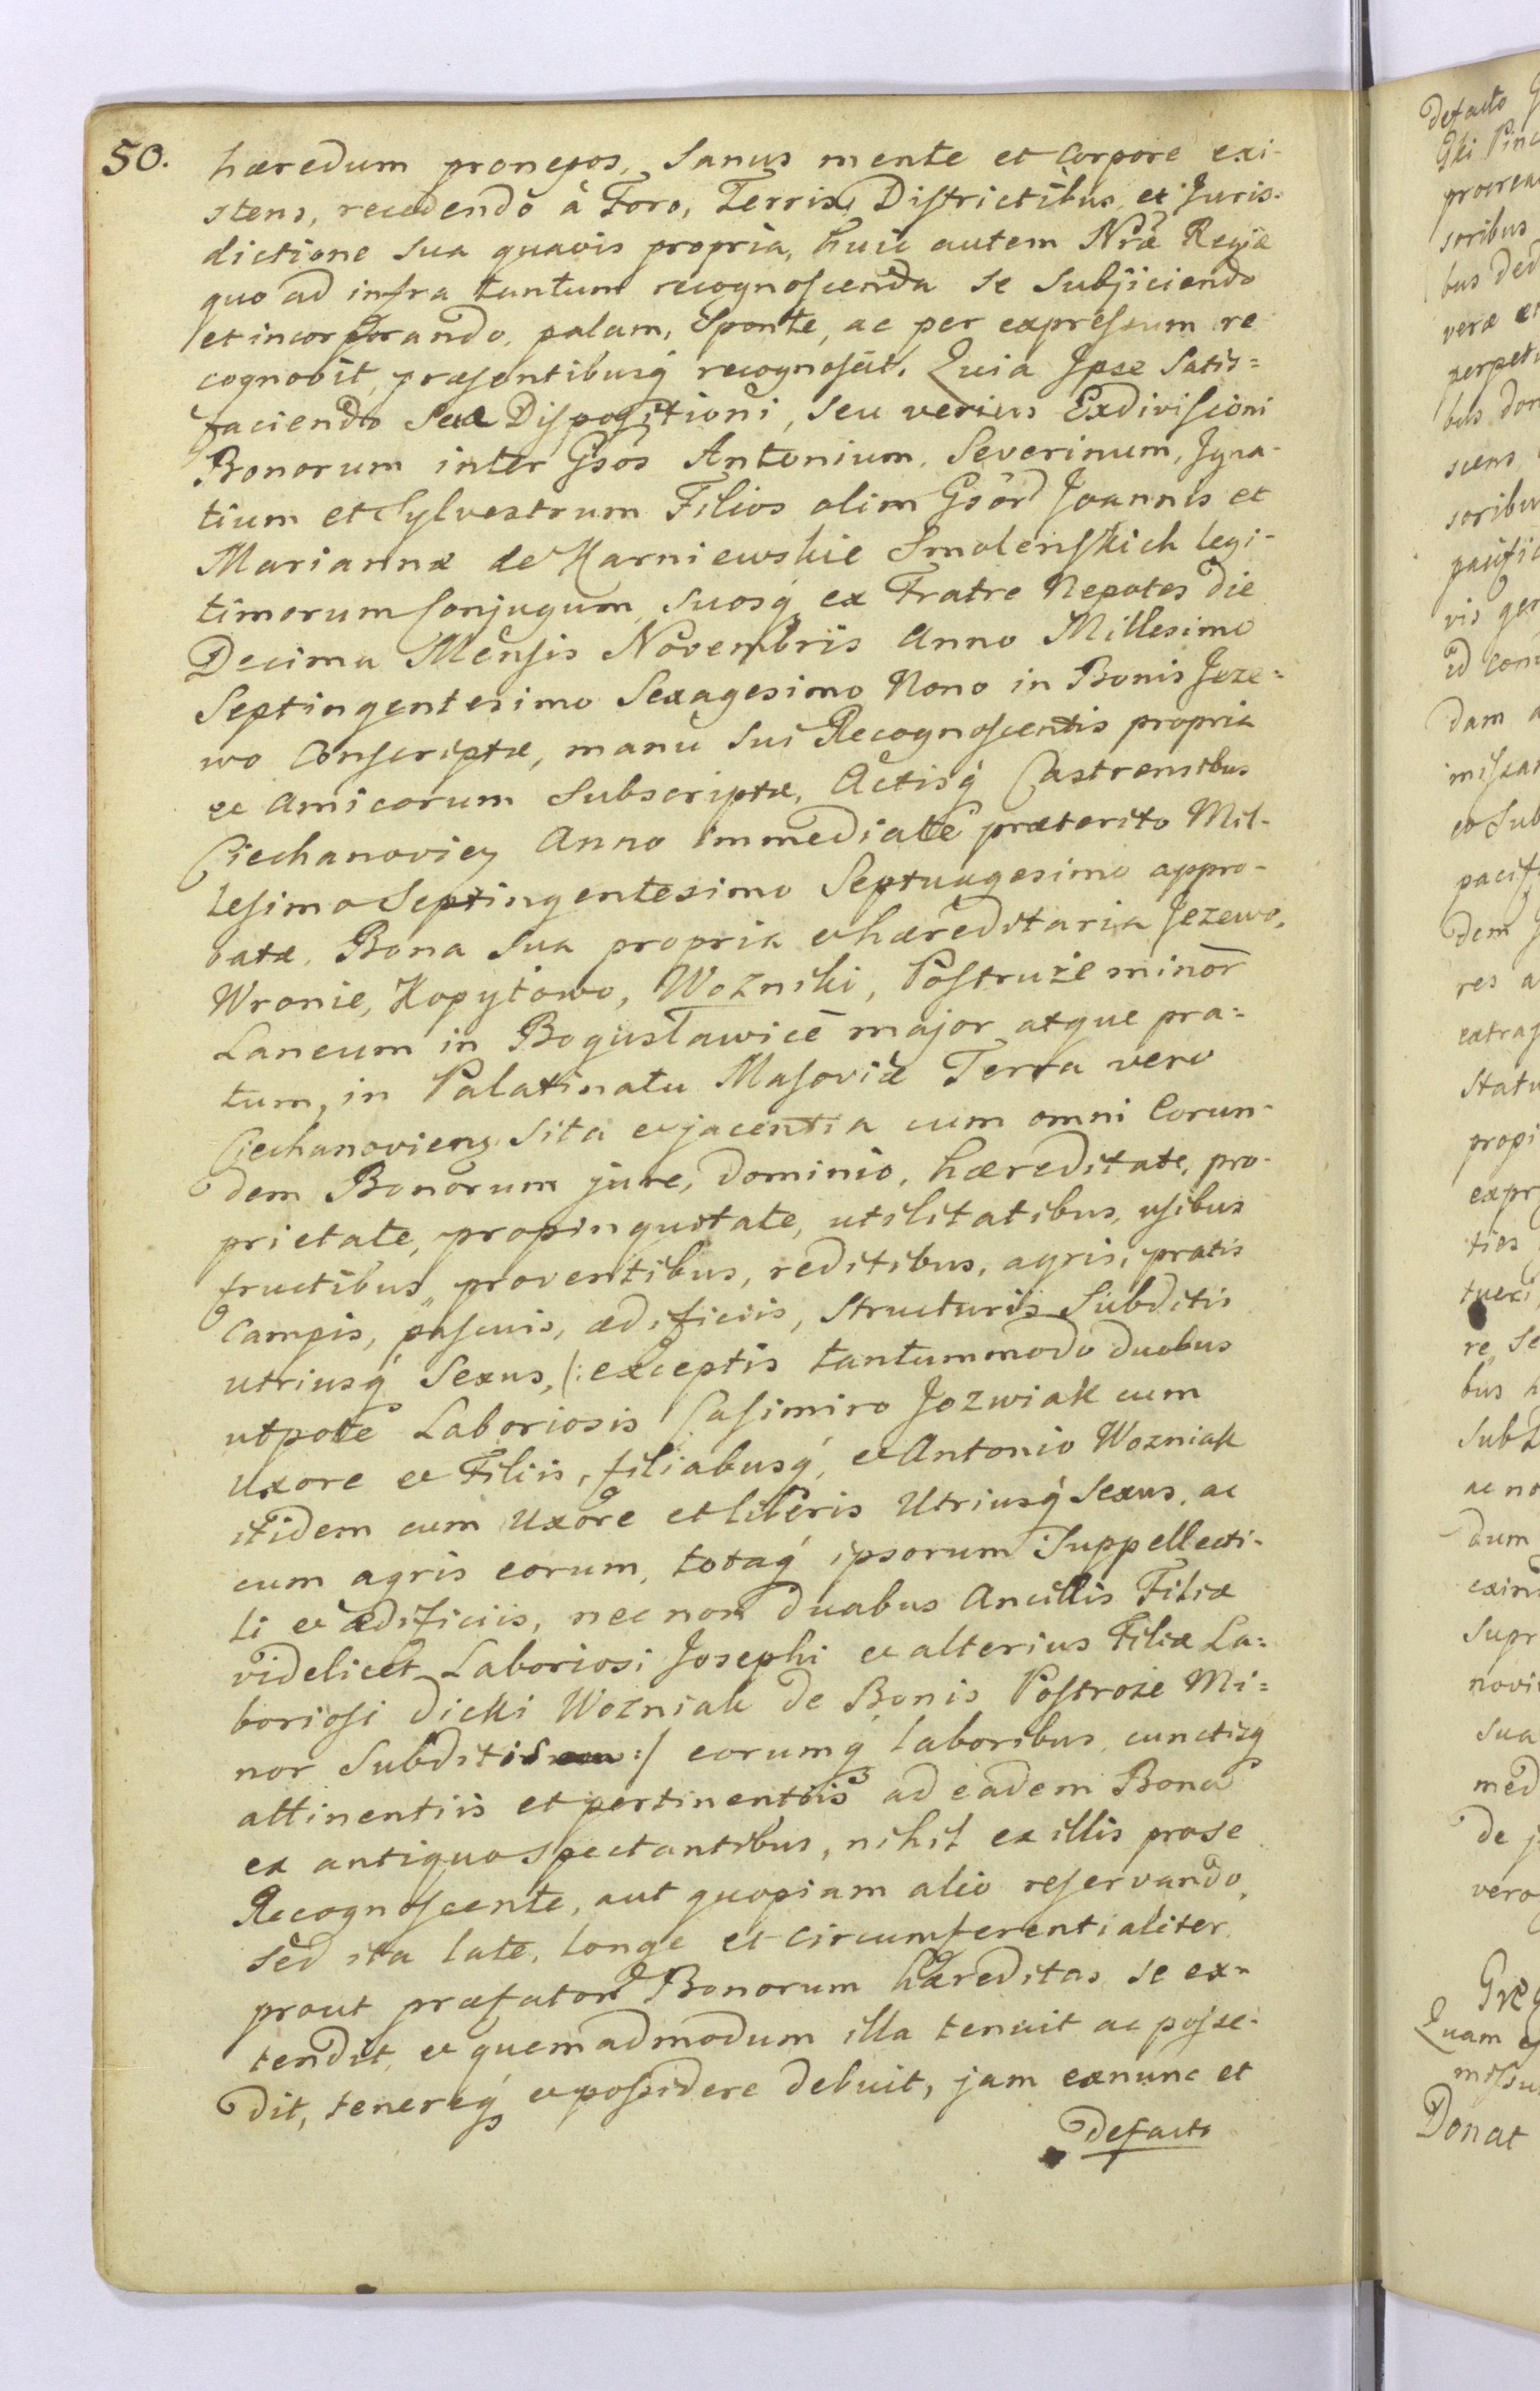 50.
hæredum pronepos, Sanus mente et Corpore exi-
stens, recedendo à Foro, Terris, Districtibus, et Juris-
dictione Sua quavis propria, huic autem Nræ Regiæ
quo ad infra tantum recognoscenda se Subjiciendo
et incorporando, palam, Sponte, ac per expressum re
cognovit, præsentibusq́ recognoscit. Quia Ipse Satis=
faciendo Suæ Dispositioni, seu verius Exdivisioni
Bonorum inter Gsos Antonium, Severinum, Igna-
tium et Sylvestrum Filios olim Gsor Joannis et
Mariannæ de Karniewskie Smolenskich legi-
timorum Conjugum, Suosq́ ex Fratre Nepotes die
Decima Mensis Novembris Anno Millesimo
Septingentesimo Sexagesimo Nono in Bonis Jeze=
wo Conscriptæ, manu Sui Recognoscentis propria
ac Amicorum Subscriptæ, Actisq́ Castrensibus
Ciechanovien Anno immediate præterito Mil-
lesimo Septingentesimo Septuagesimo appro-
batæ, Bona Sua propria et hæreditaria Jezewo,
Wronie, Kopytowo, Wozniki, Postruże minor
Laneum in Bogusławice major atque pra=
tum, in Palatinatu Masoviæ Terra vero
Ciechanovien Sita et jacentia cum omni Eorun-
dem Bonorum jure, dominio, hæreditate, pro-
prietate, propinquitate, utilitatibus, usibus
fructibus, proventibus, reditibus, agris, pratis
Campis, pascuis, ædificiis, Structuris Subditis
utriusq́ Sexus, /:exceptis tantummodo duobus
utpote Laboriosis Casimiro Jozwiak cum
Uxore et Filiis, filiabusq́, et Antonio Wozniak
itidem cum Uxore et liberis Utriusq́ Sexus, ac
cum agris eorum, totaq́ ipsorum Suppellecti-
li et ædificiis, nec non duabus Ancillis Filiæ
videlicet Laboriosi Josephi et alterius Filiæ La=
boriosi Dicki Wozniak de Bonis Postroże Mi=
nor Subditis :/ eorumq́ laboribus, cunctisq́
attinentiis et pertinentiis ad eadem Bona
ex antiquo spectantibus, nihil ex illis pro se
Recognoscente, aut quopiam alio reservando,
sed ita late, longe et circumferentialiter,
prout præfator Bonorum hæreditas se ex=
tendit, et quemadmodum illa tenuit ac posse-
dit, tenereq́ et possidere debuit, jam exnunc et
defacto
defacto
procrea
soribus
bus ded
veræ et
bus don
scens
pacific
dam a
pacif
dem
res a
extra
Statu
propi
expr
ties
tueri
re, Se
bus h
Subd
ac no
dum
Supr
novi
Sua
med
de j
vero
Quam
Donat